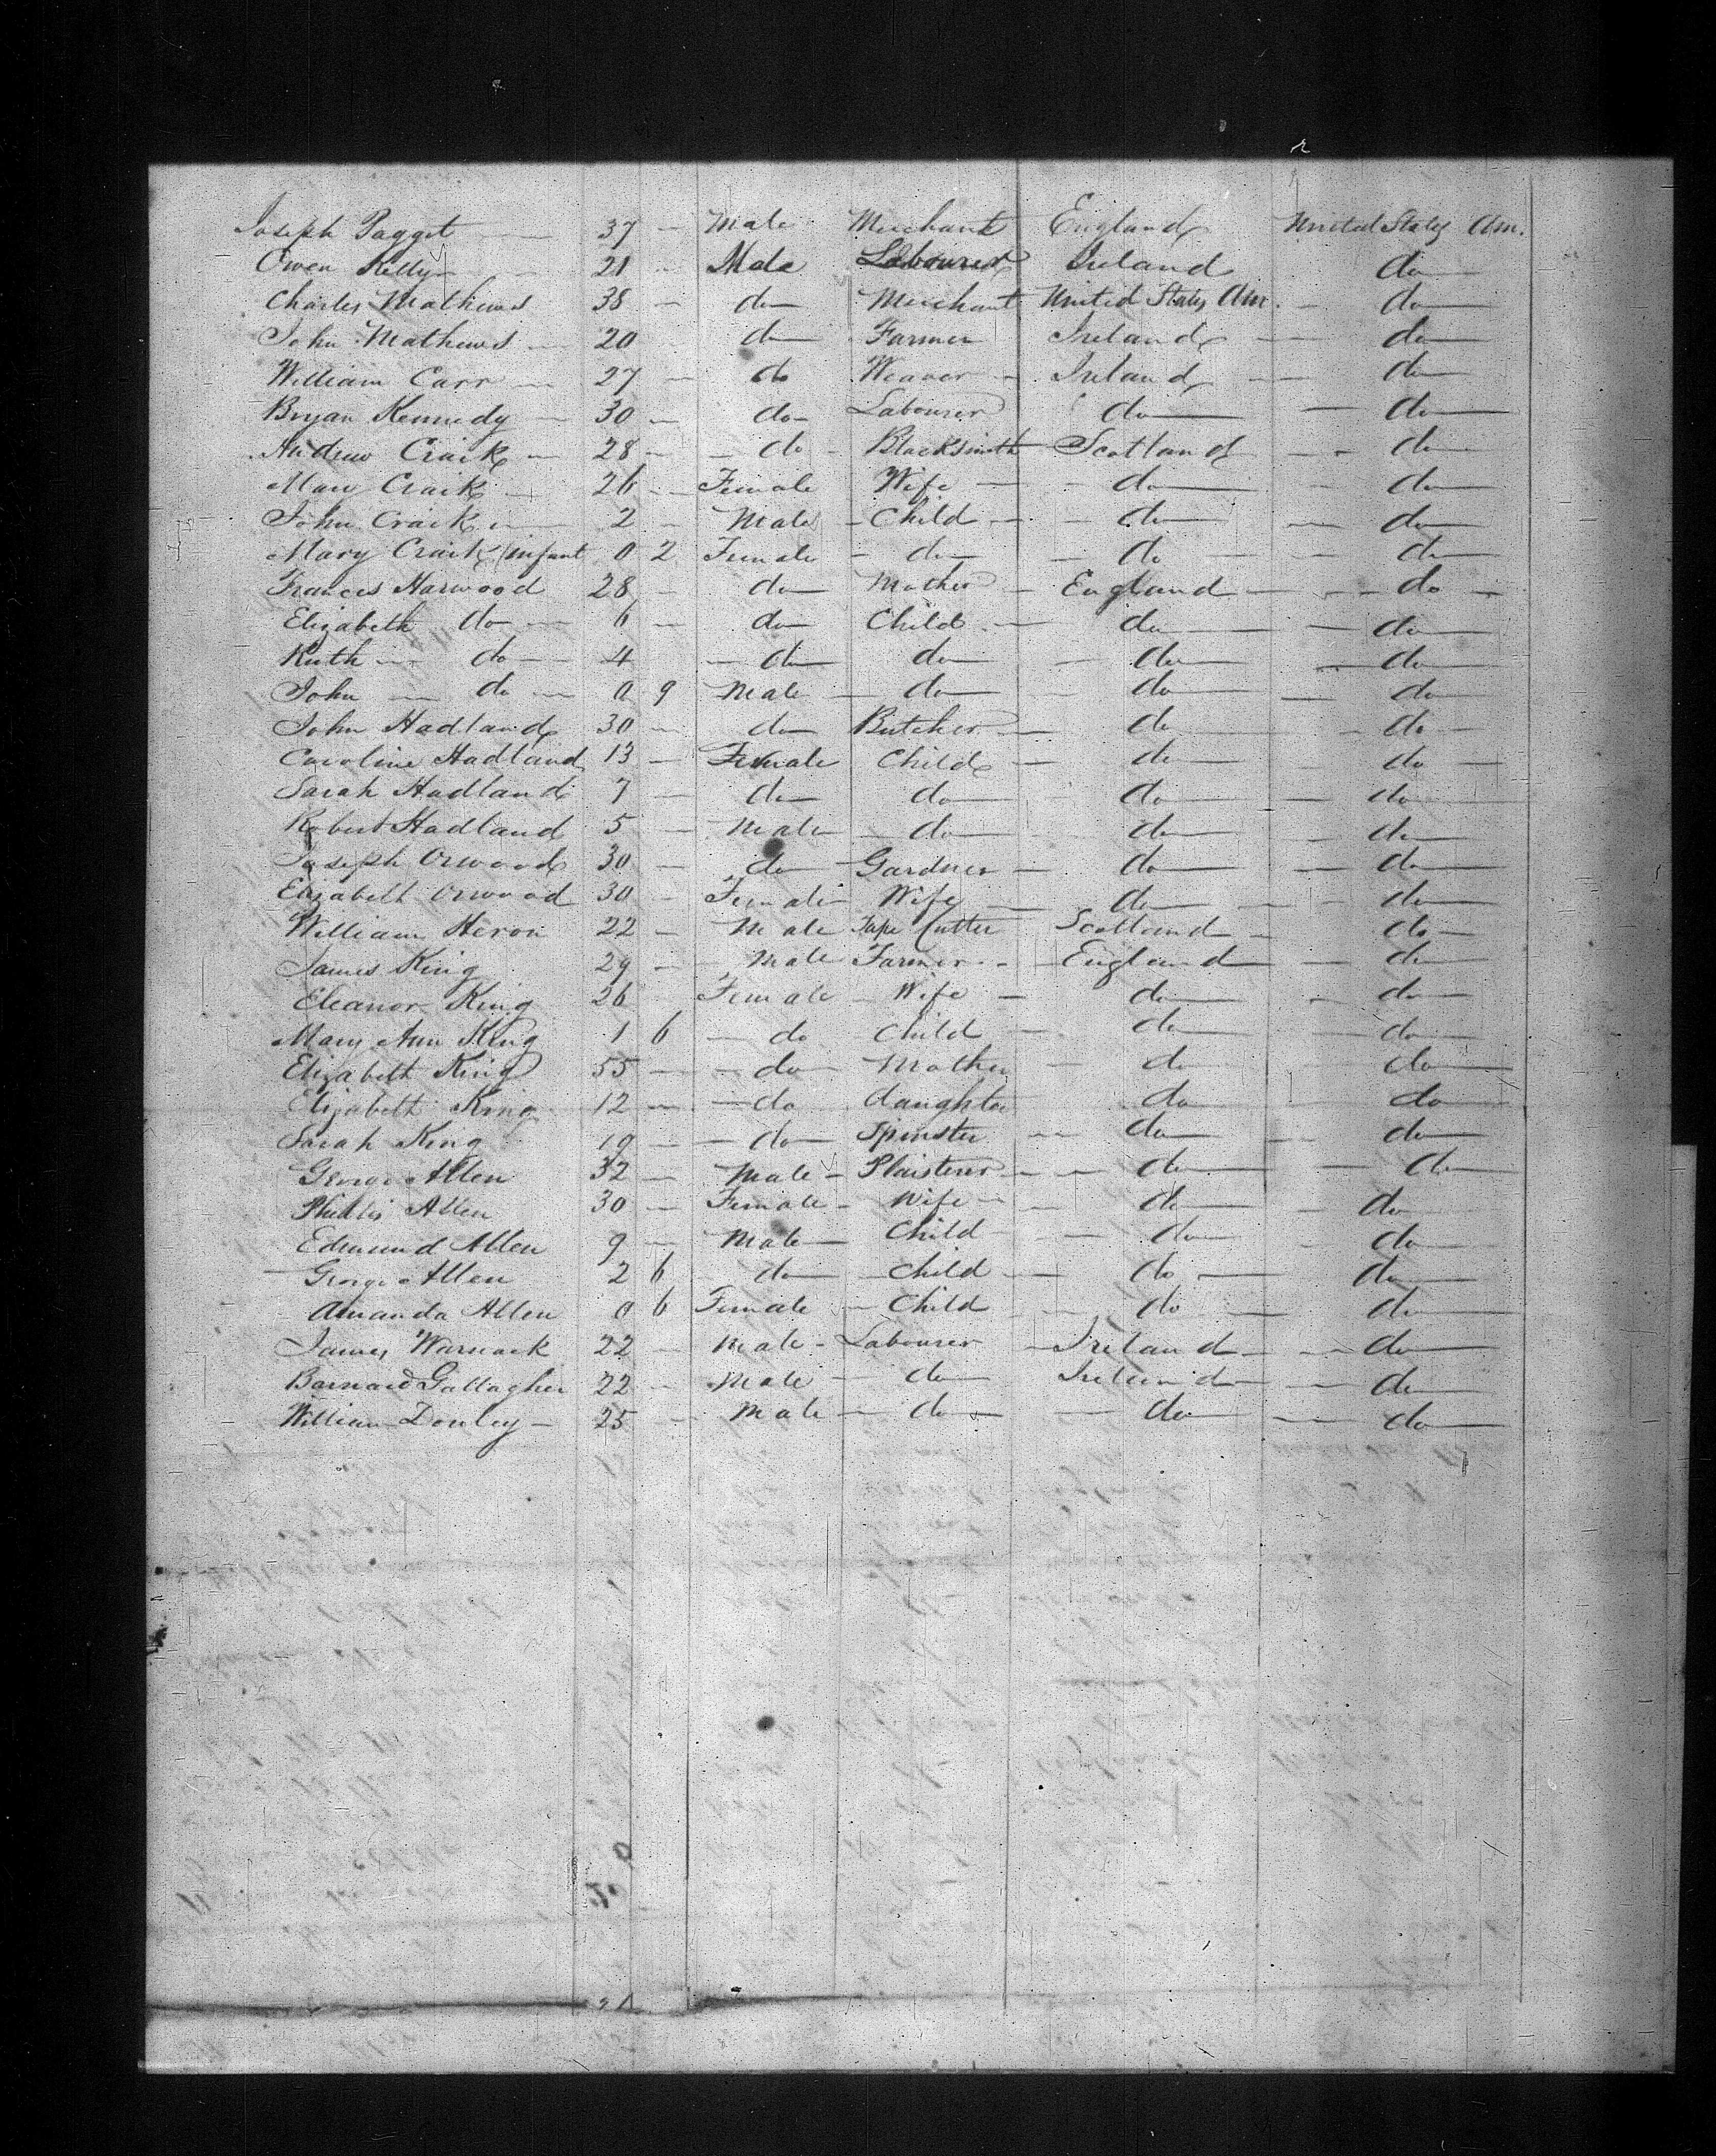 Joseph Pagget 37 Male Merchant England United States Am.
Owen Kelly 21 Male Labourer Ireland do
Charles Mathews 38 do Merchant United States Am. do
John Mathews 20 do Farmer Ireland do
William Carr 27 do Weaver Ireland do
Bryan Kennedy 30 do Labourer do do
Andrew Craik 28 do Blacksmith Scotland do
Mary Craik 26 Female Wife do do
John Craik 2 Male Child do do
Mary Craik (infant 0 2 Female do do do
Frances Harwood 28 do Mother England do
Elizabeth do 6 do Child do do
Ruth do 4 do do do do
John do 0 9 Male do do do
John Hadland 30 do Butcher do do
Caroline Hadland 13 Female Child do do
Sarah Hadland 7 do do do do
Robert Hadland 5 Male do do do
Joseph Orwood 30 do Gardner do do
Elizabeth Orwood 30 Female Wife do do
William Heron 22 Male Tape Cutter Scotland do
James King 29 Male Farmer England do
Eleanor King 26 Female Wife do do
Mary Ann King 1 6 do Child do do
Elizabeth King 55 do Mother do do
Elizabeth King 12 do daughter do do
Sarah King 19 do Spinster do do
George Allen 32 Male Plaisterer do do
Phillis Allen 30 Female Wife do do
Edmund Allen 9 Male Child do do
George Allen 2 6 do Child do do
Amanda Allen 0 6 Female Child do do
James Warnack 22 Male Labourer Ireland do
Barnard Gallagher 22 Male do Ireland do
William Donley 25 Male do do do